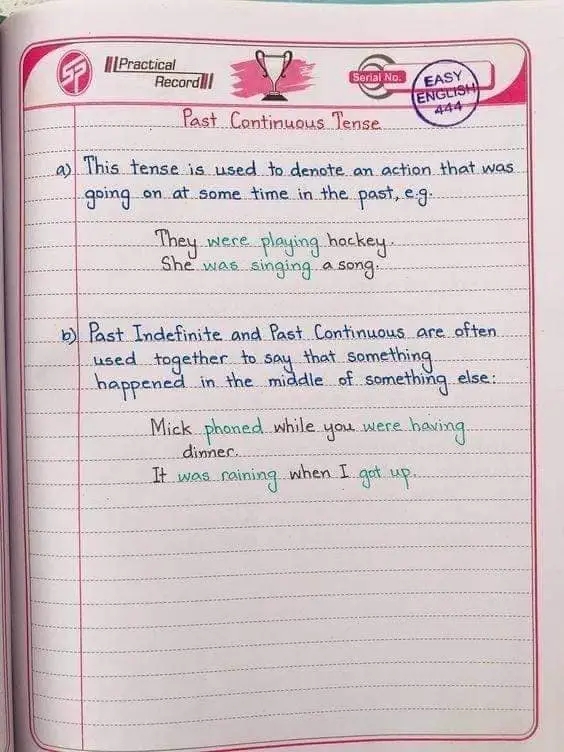 Practical
Record
Serial No.
EASY
ENGLISH
444
Past Continuous Tense
a) This tense is used to denote an action that was
going on at some time in the past, e.g.
They were playing hockey.
She was singing a song.
b) Past Indefinite and Past Continuous are often
used together to say that something
happened in the middle of something else:
Mick phoned while you were having
dinner.
It was raining when I got up.